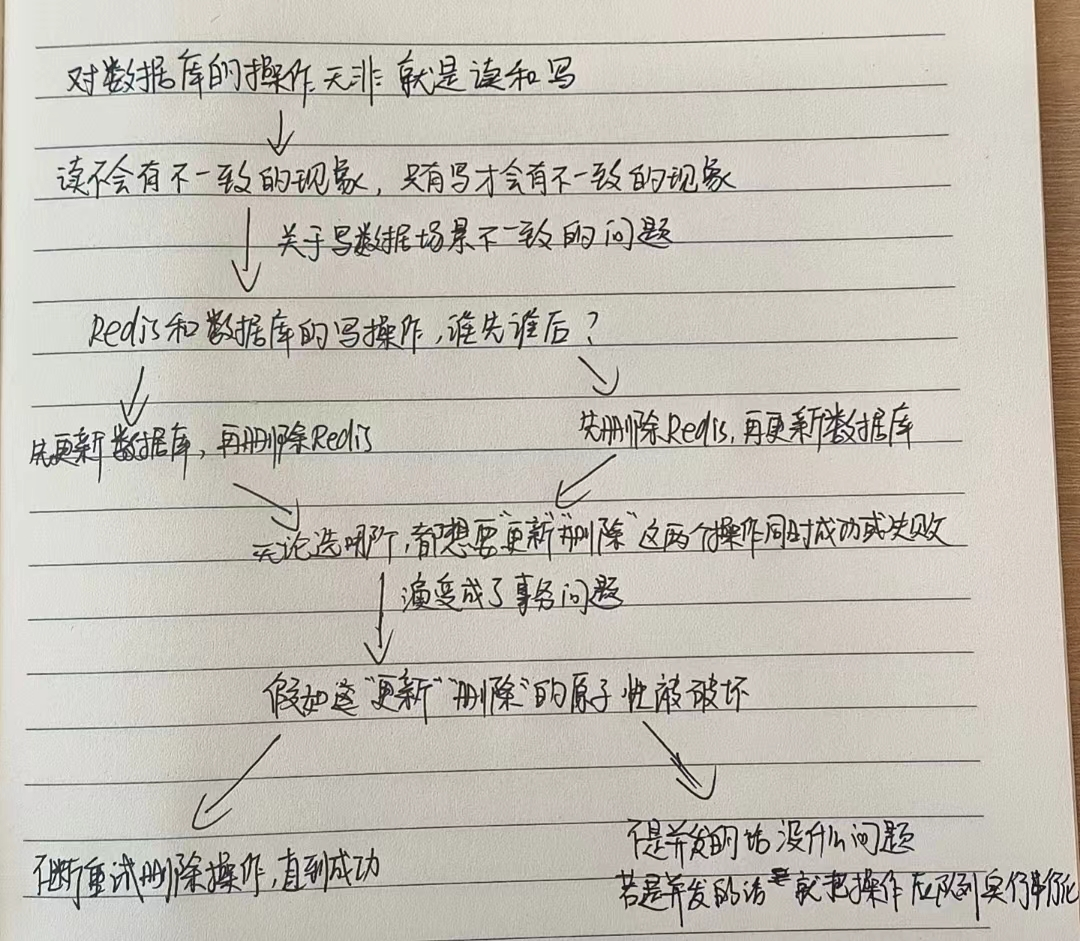 对数据库的操作无非就是读和写
读不会有不一致的现象，只有写才会有不一致的现象
关于写数据场景不一致的问题
Redis和数据库的写操作，谁先谁后？
先更新数据库，再删除Redis
先删除Redis，再更新数据库
无论选哪个，都想要"更新""删除"这两个操作同时成功或失败
演变成了事务问题
假如这"更新""删除"的原子性被破坏
不断重试删除操作，直到成功
不是并发的话没什么问题
若是并发的话 就把操作 队列实行串行化